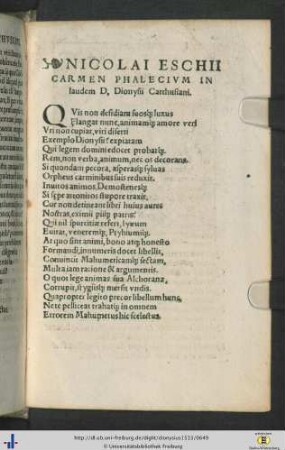 NICOLAI ESCHII
CARMEN PHALECIVM IN
laudem D, Dionysii Carthusiani.
QVis non desidiam suosq; luxus
Plangat nunc, animamq; amore veri
Vri non cupiat, viri diserti
Exemplo Dionysii? expiatam
Qui legem domini edocet probatiq.
Rem, non verba, animum, nec os decorans.
Si quondam pecora, asperasq; syluas
Orpheus carminibus suis reduxit.
Inuitos animos, Demosthenesq;
Si sępe attonitos stupore traxit,
Cor non detineant libri huius aures
Nostras, eximii piiq; patris?
Qui nil spurcitiæ refert, lyæum
Euitat, veneremq;, Pythiumq;.
At quo sint animi, bono atq; honesto
Formandi, innumeris docet libellis,
Conuincit Mahumeticamq; sectam,
Multa iam ratione & argumentis.
O quot lege animas sua Alchorana,
Corrupit, stygiisq; mersit vndis.
Quapropter legito precor libellum hunc,
Ne te pelliceat trahatq; in omnem
Errorem Mahumetus hic scelestus.
http://dl.ub.uni-freiburg.de/diglit/dionysius1533/0649
© Universitätsbibliothek Freiburg